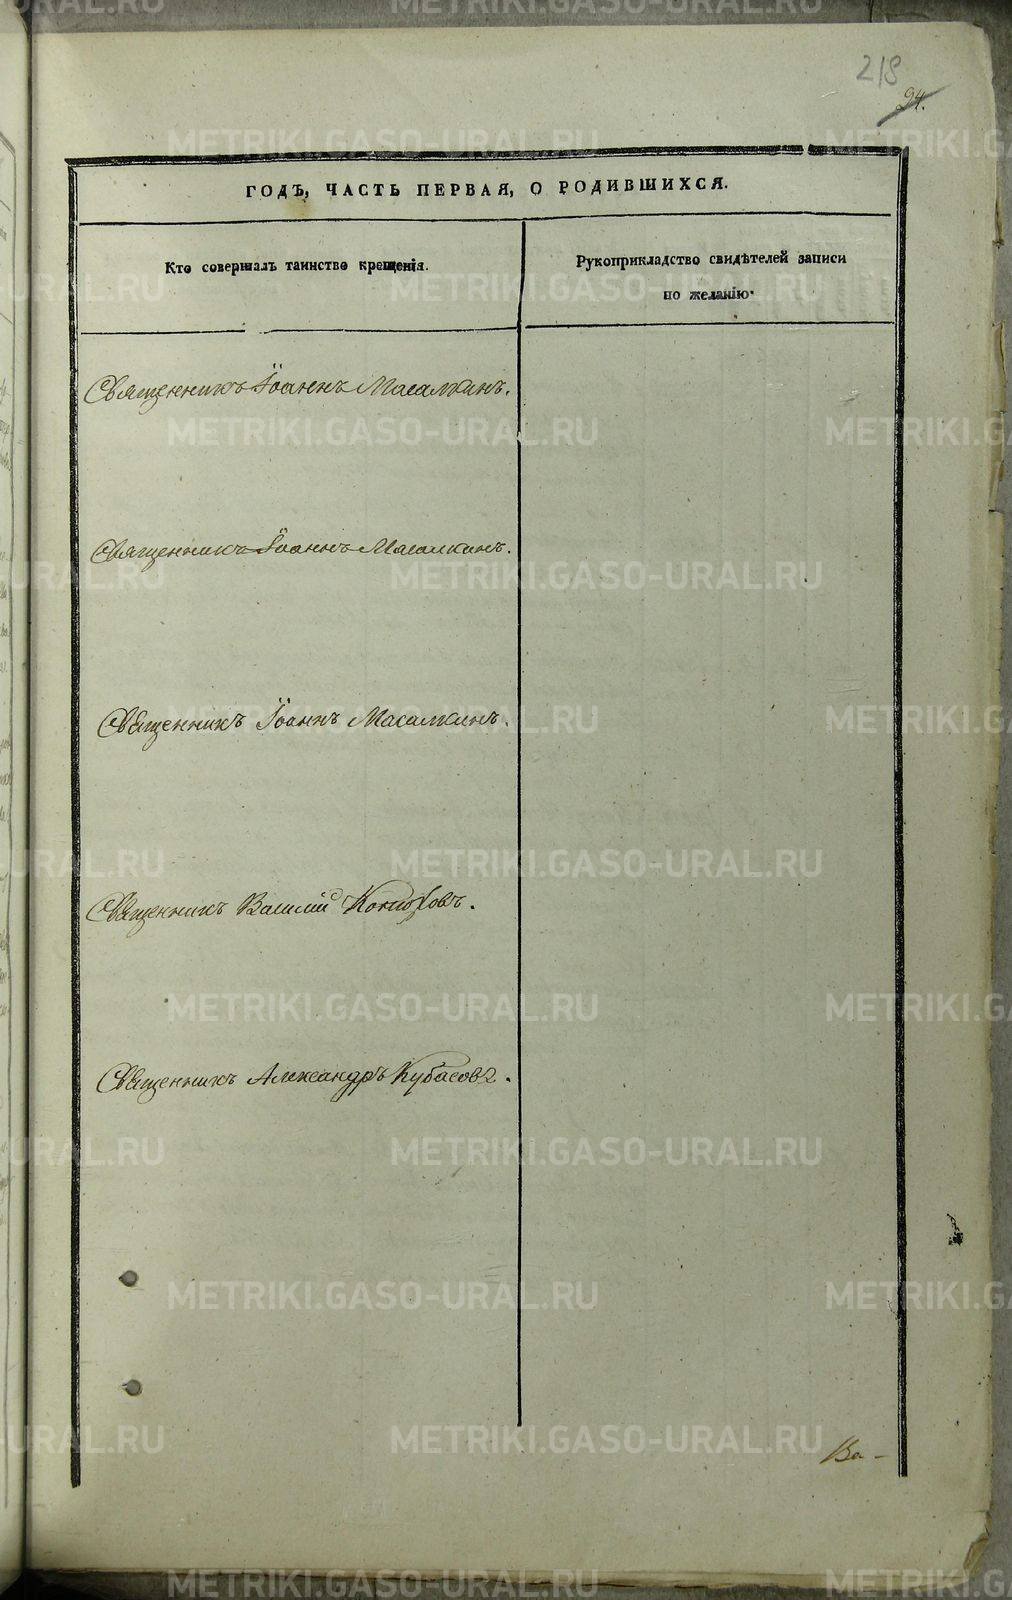 218
94.
ГОДЪ, ЧАСТЬ ПЕРВАЯ, О РОДИВШИХСЯ.
Кто совершалъ таинство крещенія.
Рукоприкладство свидѣтелей записи
по желанію.
Священникъ Іоаннъ Масалкинъ.
Священникъ Іоаннъ Масалкинъ.
Священникъ Іоаннъ Масалкинъ.
Священникъ Василій Конюховъ.
Священникъ Александръ Кубасовъ.
Ва-
METRIKI.GASO-URAL.RU